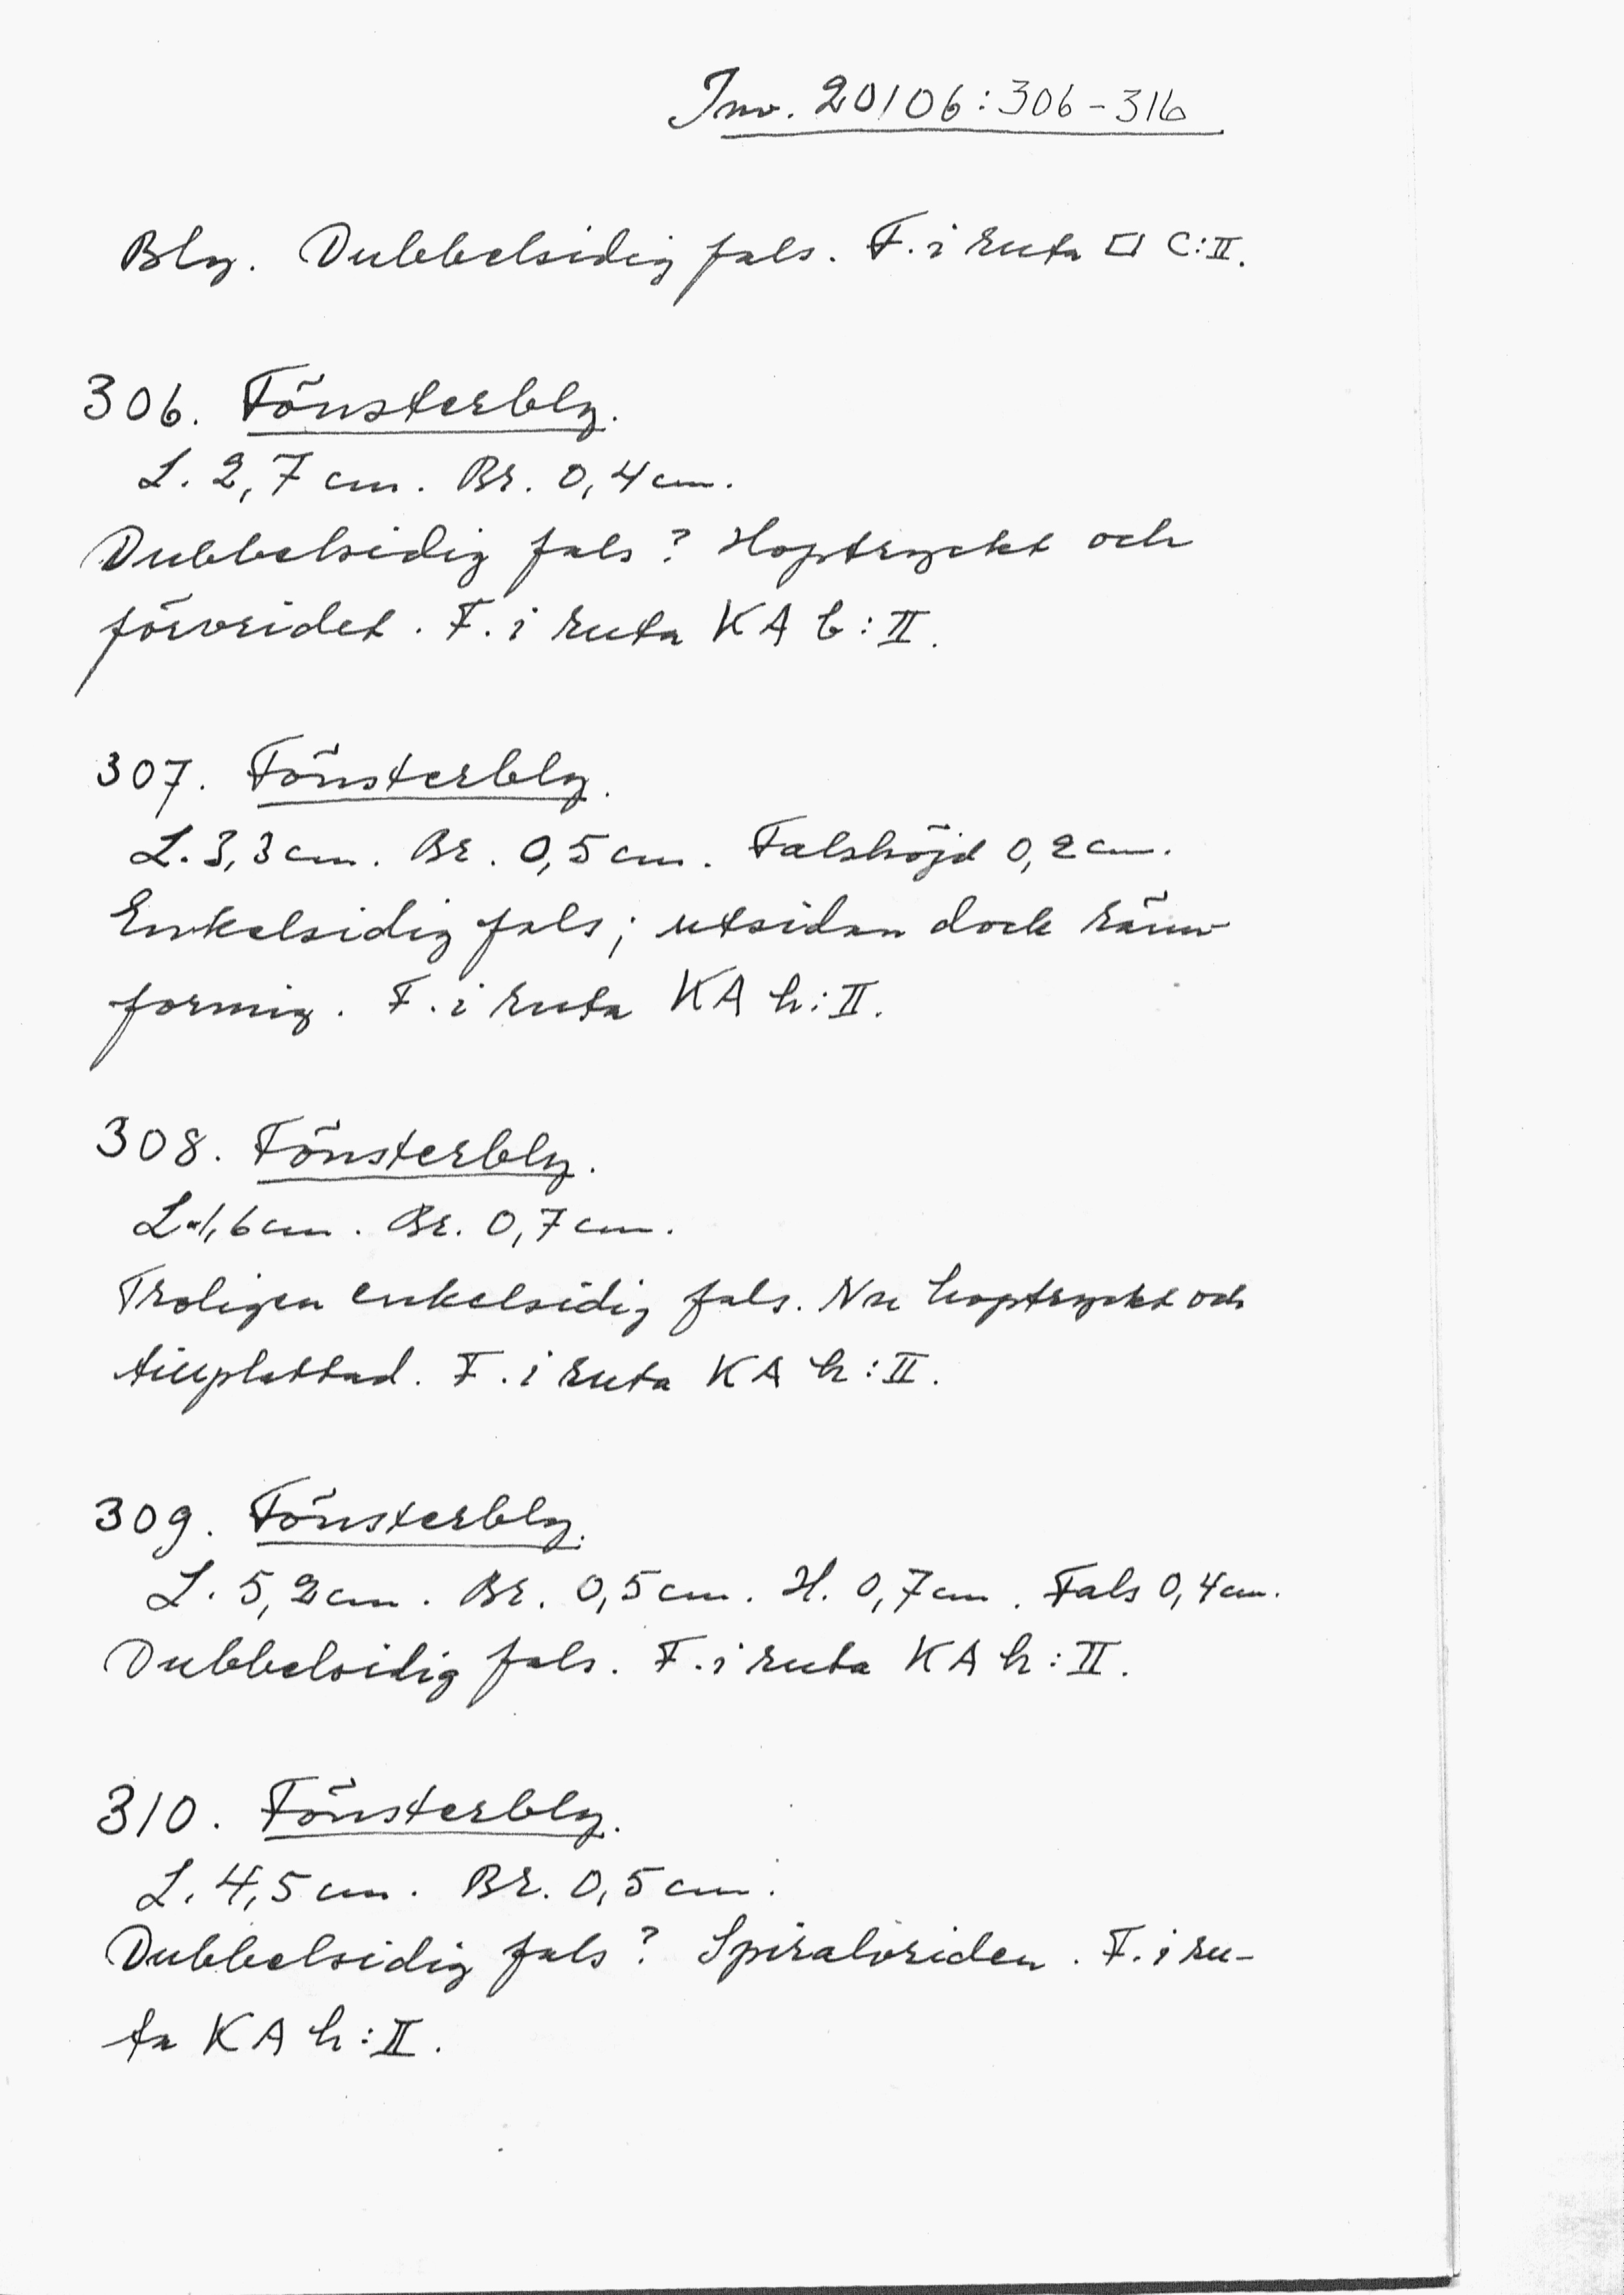 Inv. 20106:306-316
Bly. Dubbelsidig fals. F. i ruta □ C:II.
306. Fönsterbly.
L. 2,7 cm. Br. 0,4 cm.
Dubbelsidig fals? Hoptryckt och
förvridet. F. i ruta KA b:II.
307. Fönsterbly.
L. 3,3 cm. Br. 0,5 cm. Falshöjd 0,2 cm.
Enkelsidig fals; utsidan dock ränn-
formig. F. i ruta KA h:II.
308. Fönsterbly.
L. 1,6 cm. Br. 0,7 cm.
Troligen enkelsidig fals. Nu hoptryckt och
tillplattad. F. i ruta KA h:II.
309. Fönsterbly.
L. 5,2 cm. Br. 0,5 cm. H. 0,7 cm. Fals 0,4 cm.
Dubbelsidig fals. F. i ruta KA h:II.
310. Fönsterbly.
L. 4,5 cm. Br. 0,5 cm.
Dubbelsidig fals? Spiralvriden. F. i ru-
ta KA h:II.